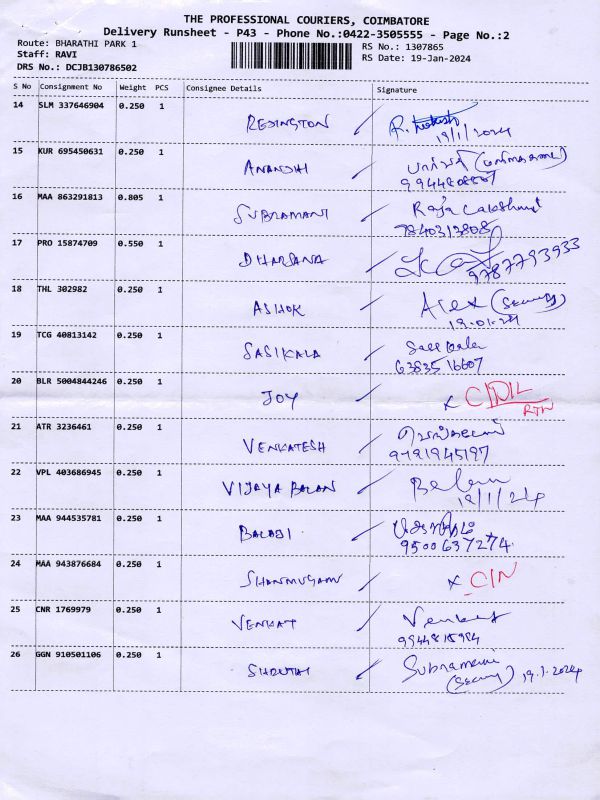 THE PROFESSIONAL COURIERS, COIMBATORE
Delivery Runsheet - P43 - Phone No.:0422-3505555 - Page No.:2
Route: BHARATHI PARK 1
Staff: RAVI
DRS No.: DCJB130786502
RS No.: 1307865
RS Date: 19-Jan-2024
S No Consignment No Weight PCS Consignee Details Signature
14 SLM 337646904 0.250 1 REDINGTON
19/1/2024
15 KUR 695450631 0.250 1 ANANDHI
16 MAA 863291813 0.805 1 SUBRAMANI Raja Lakshmi
7840312808
17 PRO 15874709 0.550 1 DHARSANA
9787793933
18 THL 302982 0.250 1 ASHOK Alex (Security)
19.01.24
19 TCG 40813142 0.250 1 SASIKALA
6383516607
20 BLR 5004844246 0.250 1 JOY x
21 ATR 3236461 0.250 1 VENKATESH
9791945197
22 VPL 403686945 0.250 1 VIJAYA BALAN
19/1/24
23 MAA 944535781 0.250 1 BALAJI
9500637274
24 MAA 943876684 0.250 1 SHANMUGAM x C/N
25 CNR 1769979 0.250 1 VENKAT Venkat
26 GGN 910501106 0.250 1 SHRUTHI Subramani
(Security) 19.1.2024